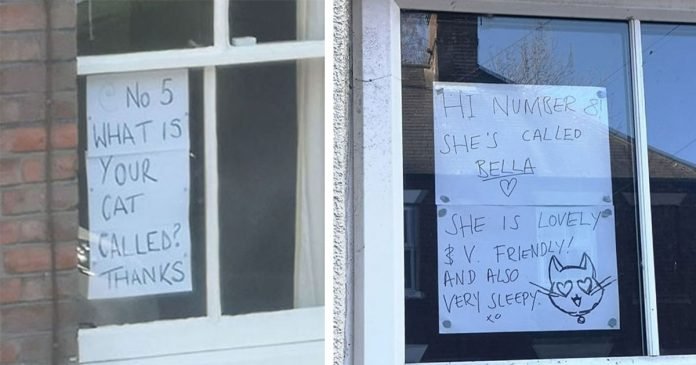 No 5
WHAT IS
YOUR
CAT
CALLED?
THANKS
HI NUMBER 8!
SHE'S CALLED
BELLA
SHE IS LOVELY
& V. FRIENDLY!
AND ALSO
VERY SLEEPY.
xo